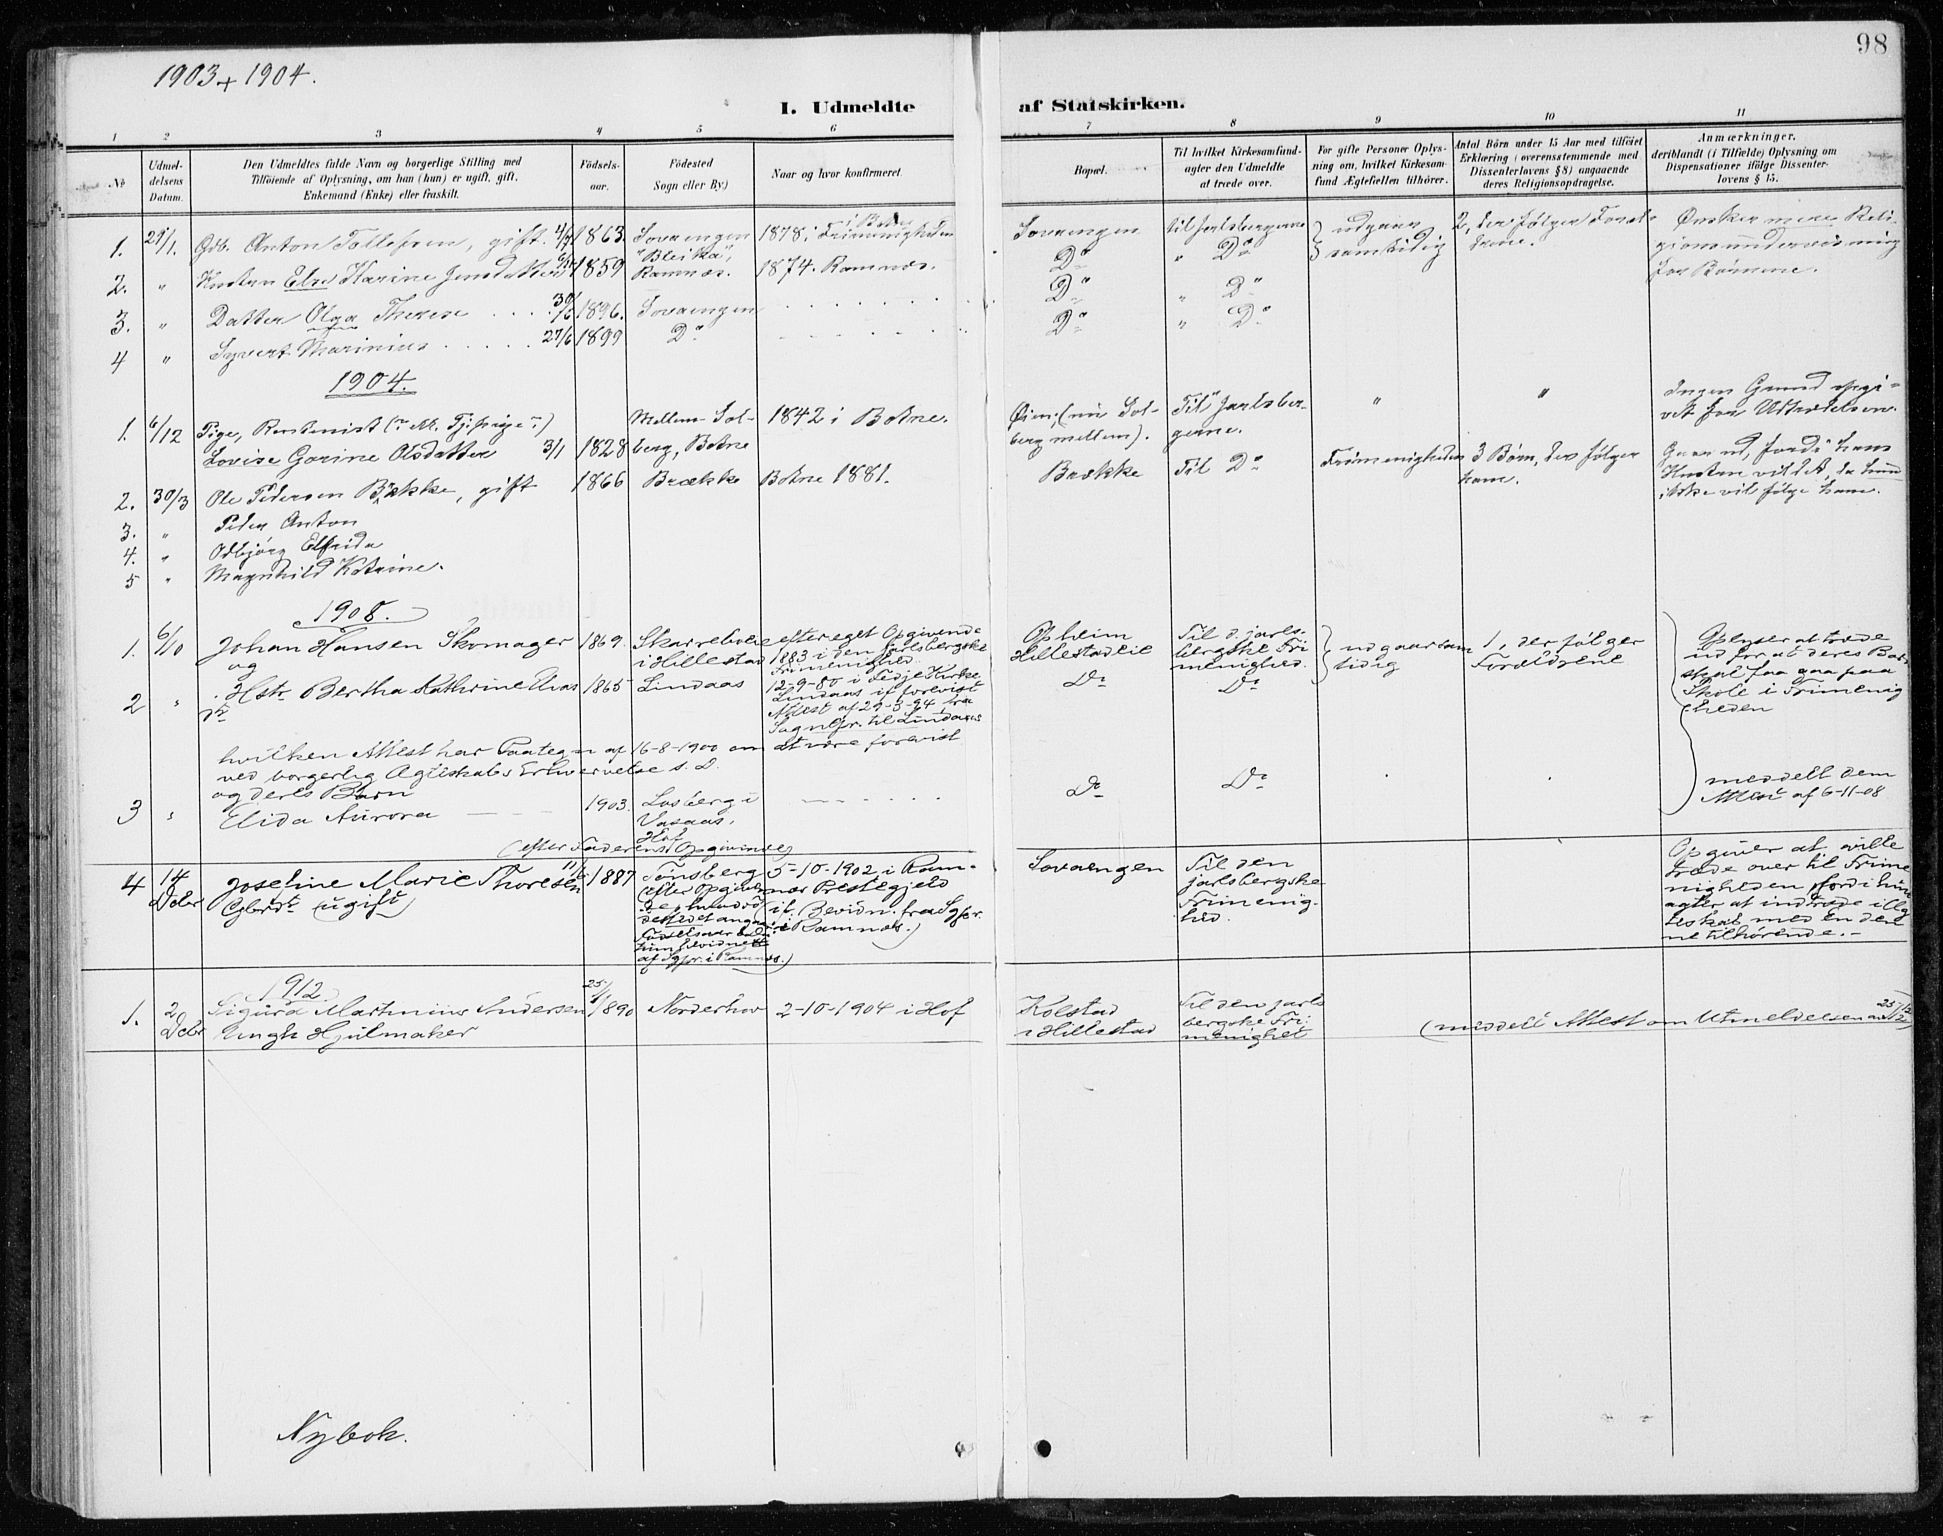 98
1903 + 1904.
I. Udmeldte af Statskirken.
1 2 3 4 5 6 7 8 9 10 11
No
Udmel-
delsens
Datum.
Den Udmeldtes fulde Navn og borgerlige Stilling med
Tilföiende af Oplysning, om han (hun) er ugift, gift,
Enkemand (Enke) eller fraskilt.
Födsels-
aar.
Födested
Sogn eller By)
Naar og hvor konfirmeret.
Bopæl.
Til hvilket Kirkesamfund
agter den Udmeldte
at træde over.
For gifte Personer Oplys-
ning om, hvilket Kirkesam-
fund Ægtefællen tilhörer.
Antal Börn under 15 Aar med tilföiet
Erklæring (overensstemmende med
Dissenterlovens § 8) angaaende
deres Religionsopdragelse.
Anmærkninger,
deriblandt (i Tilfælde) Oplysning om
Dispensationer ifölge Dissenter-
lovens § 15.
1. 29/1. Gdb. Anton Tollefsen, gift. 4/9 1863. Sovaengen 1878 i Frimenigheden i Botne Sovaengen til Jarlsbergerne
udgaar
samtidig
2, der følger Foræl-
drene.
Ønsker mere Reli-
gionsundervisning
for Børnene.
2. " Hustru Else Karine Jensdatter 1859 "Bleika",
Ramnæs. 1874. Ramnæs. Do " Do
3. " Datter Olga Therese . . . 30/5 1896. Sovaengen . . . . . Do " Do
4 " Syvert Marinius . . . . . 27/6 1899 Do . . . . . Do " Do
1904.
1. 6/12 Pige, Rentenist
Lovise Gorine Olsdatter 3/1 1828
Mellem-Sol-
berg, Botne
1842 i Botne.
Øien, (nu Sol-
berg mellem).
Til Jarlsber-
gerne.
" "
Ingen Grund opgi-
vet for Udtrædelsen.
2. 30/3 Ole Pedersen Bække, gift 1866 Brække Botne 1881. Brække Til Do Frimenigheden
3 Børn, der følger
ham.
Gaar ud, fordi hans
Hustru vil det, da hun
ikke vil følge ham.
3. " Peder Anton
4. " Odbjørg Elfrida
5 " Magnhild Katrine.
1908.
1. 6/10 Johan Hansen Skomager 1869.
og
Skarrebole
i Hillestad
efter eget Opgivende
1883 i den Jarlsbergske
Frimenighed.
Opheim
Hillestadeie
Til d. jarls-
bergske Fri
menighed.
udgaar sam
tidig
1, der følger
Forældrene
Oplyser at træde
ud for at deres Barn
skal faa gaa paa
Skole i Frimenig
heden
2 " Hstr. Bertha Kathrine Elias
dtr
1865 Lindaas
12-9-80 i Sedje Kirke
Lindaas if. forevist
Attest af 29-5-94 fra
Sognepr. til Lindaas
Do Do
hvilken Attest har Paategn af 16-8-1900 om at være forevist
ved borgerlig Ægteskabs Erhvervelse s. D.
og deres Barn
3 " Elida Aurora 1903.
Losberg i
Vasaas,
Hof
(efter Faderens Opgivende)
Do Do
meddelt dem
Attest af 6-11-08
4 14
Debr
Josefine Marie Thoresen
Gbrdt (ugift)
1887 Tønsberg
(efter Opgiven
de,
Fødselsaar
af Sgpr. i Ramnes.)
5-10-1902 i Ram-
nes Prestegjeld
(if. Bevidn. fra Sgpr.
i Ramnæs.)
Sovaengen
Til den
jarlsbergske
Frimenig-
hed.
Opgiver at ville
træde over til Frime
nigheden, fordi hun
agter at indtræde i Æg
teskab med en den
ne tilhørende.-
1912.
1. 2
Debr
Sigurd Martinius Andersen
Ungk Hjulmaker
25/1 1890 Norderhov 2-10-1904 i Hof
Kolstad
i Hillestad
Til den jarls
bergske Fri
menighet
(meddelt Attest om Utmeldelsen
Ny bok.